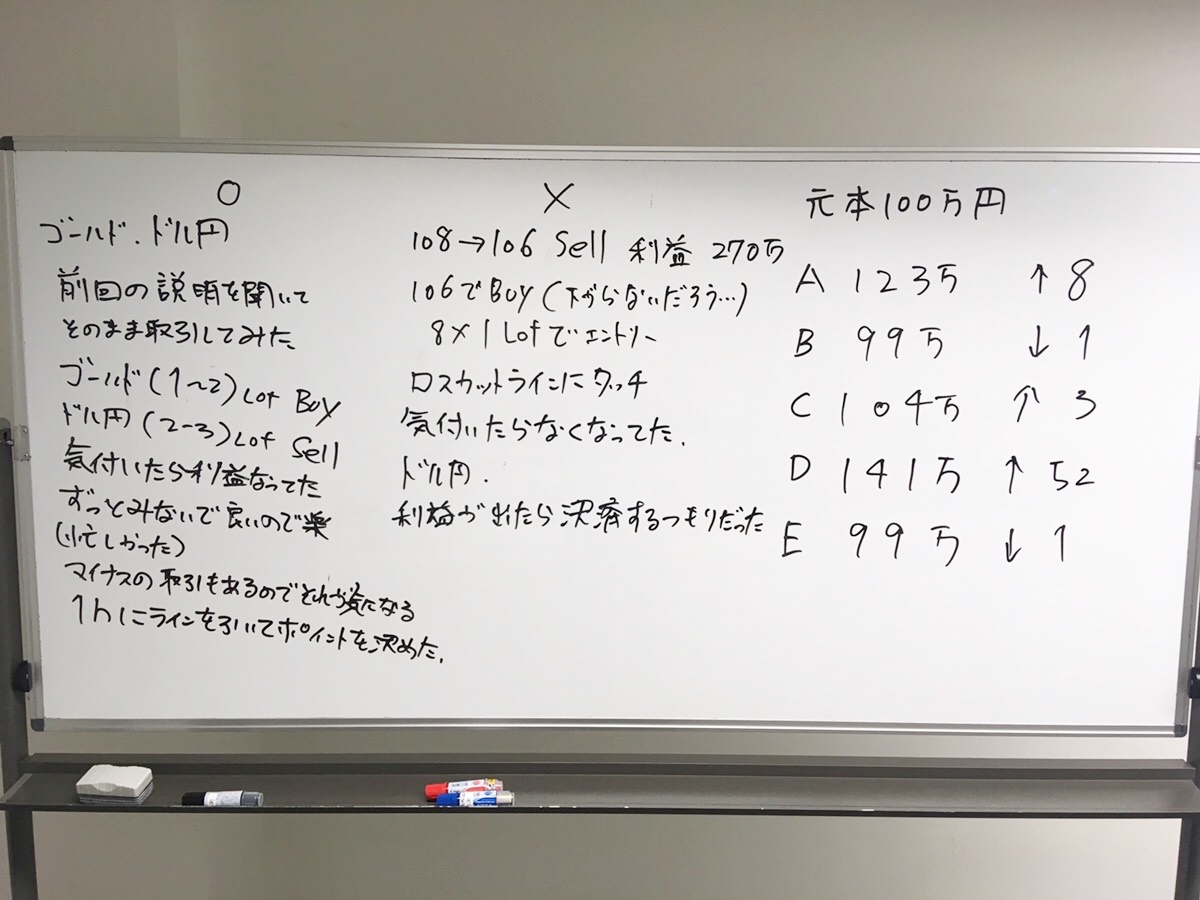 ○
ゴールド、ドル円
前回の説明を聞いて
そのまま取引してみた
ゴールド(1~2)Lot Buy
ドル円(2-3)Lot Sell
気付いたら利益なってた
ずっとみないで良いので楽
(忙しかった)
マイナスの取引もあるのでそれが気になる
1hにラインを引いてポイントを決めた.
×
108→106 Sell 利益 270万
106でBuy(下がらないだろう…)
8×1Lotでエントリー
ロスカットラインにタッチ
気付いたらなくなってた.
ドル円.
利益が出たら決済するつもりだった
元本100万円
A 123万 ↑8
B 99万 ↓1
C 104万 ↑3
D 141万 ↑52
E 99万 ↓1